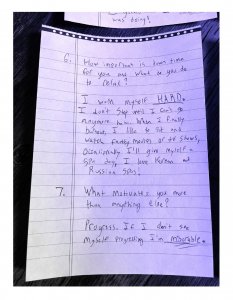 was being!
6. How important is down time
for you and what do you do
to relax?
I work myself HARD.
I don't stop until I can't go
anymore haha. When I finally
burnout, I like to sit and
watch funny movies or TV shows,
Occasionally I'll give myself a
spa day, I love Korean and
Russian spas.
7. What motivates you more
than anything else?
Progress. If I don't see
myself progressing I'm miserable.